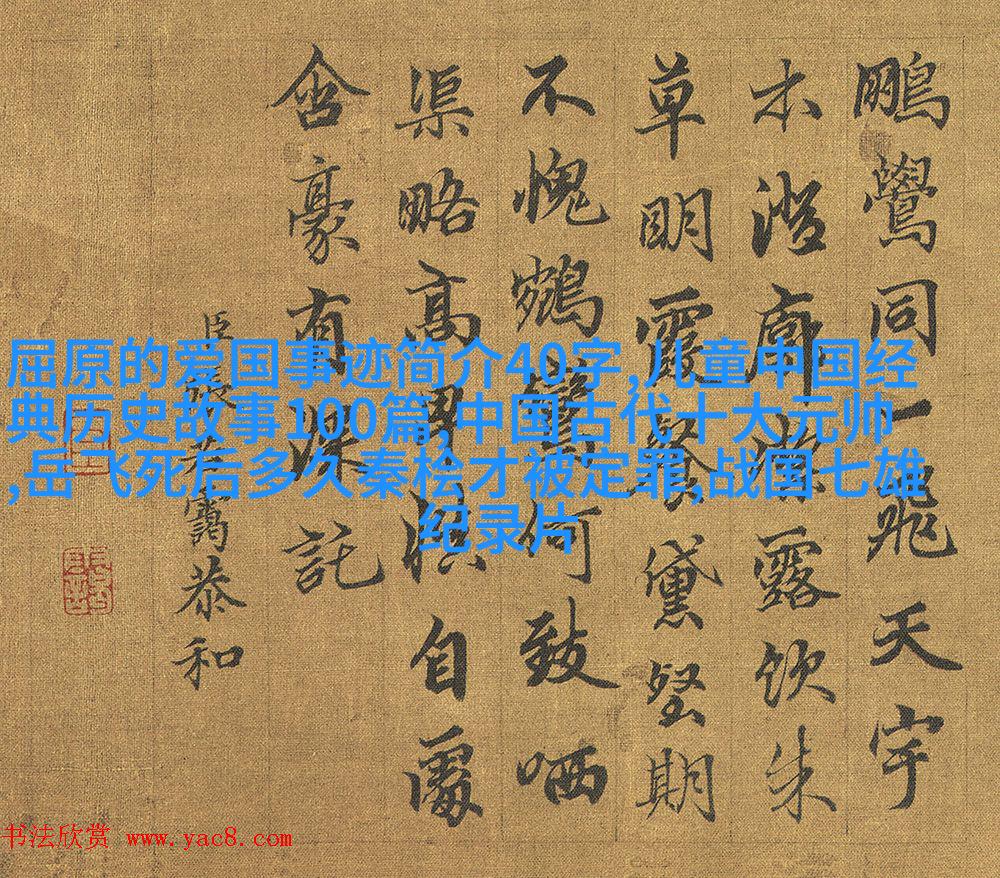 鵬鷽同一飛天宇
本澄廓漱露飲朱
草明霞餐黛壑期
不愧鵷鸞何致哂
渠略高舉慎自處
含豪有深託
臣張若靄恭和
屈原的爱国事迹简介40字,儿童中国经
典历史故事100篇,中国古代十大元帅
,岳飞死后多久秦桧才被定罪,战国七雄
纪录片
书法欣赏 www.yac8.com